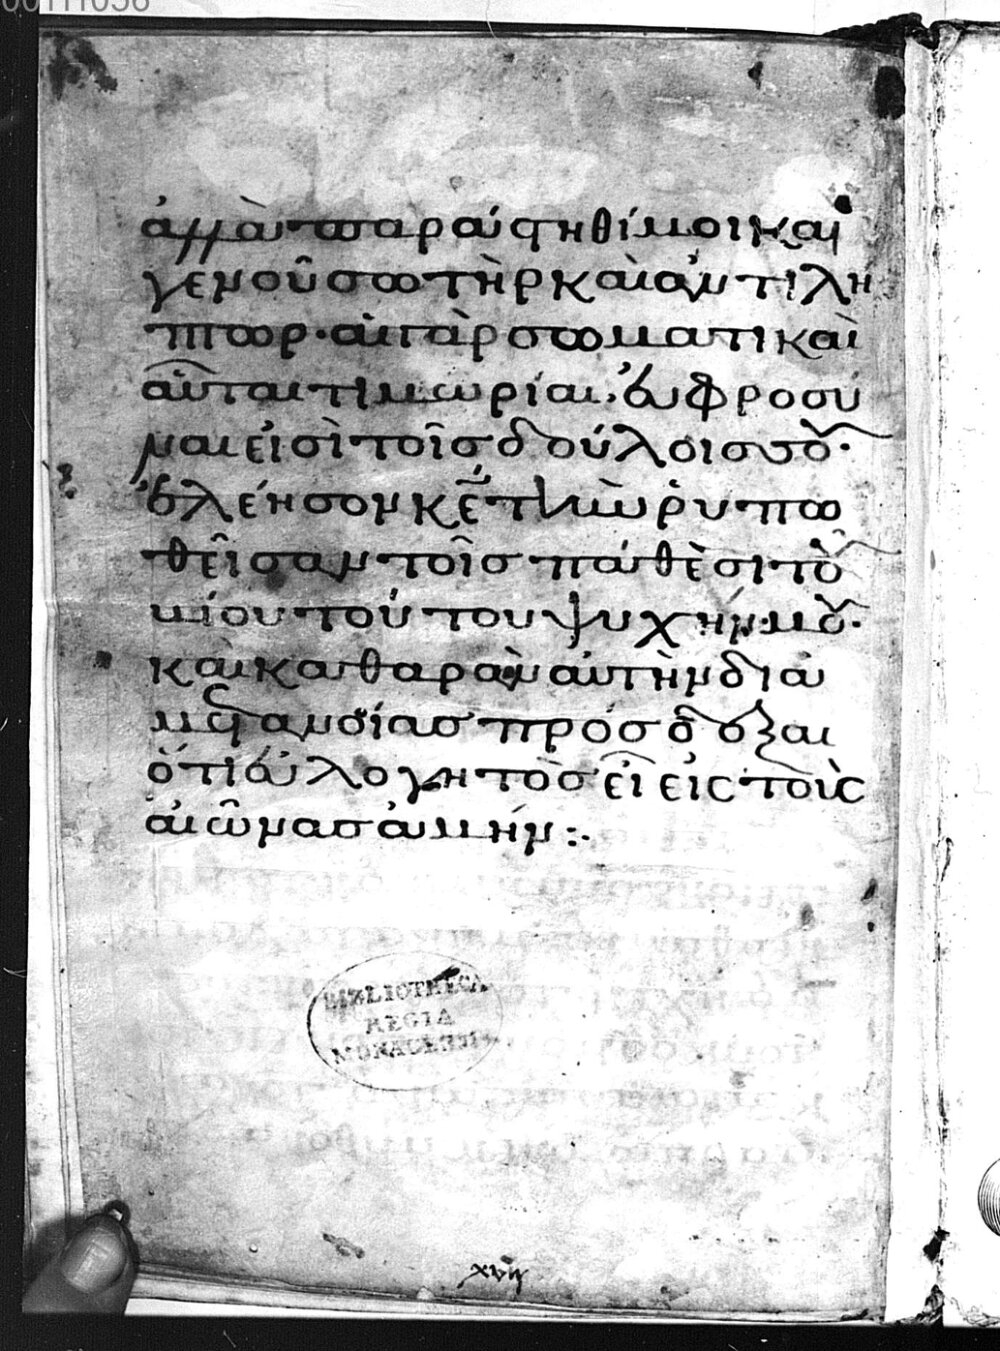 00111038
ἀλλὰ παράστηθί μοι καὶ
γενοῦ σωτὴρ καὶ ἀντιλή
πτωρ· αἱ γὰρ σωματικαὶ
αὗται τιμωρίαι, εὐφροσύ
ναι εἰσὶ τοῖς δούλοις σου·
ἐλέησον κε τὴν ῥυπω
θεῖσαν τοῖς πάθεσι τοῦ
βίου τούτου ψυχήν μου·
καὶ καθαρὰν αὐτὴν διὰ
μετανοίας πρόσδεξαι
ὅτι εὐλογητὸς εἶ εἰς τοὺς
αἰῶνας ἀμήν:·
BIBLIOTHECA
REGIA
MONACENSIS
xvij